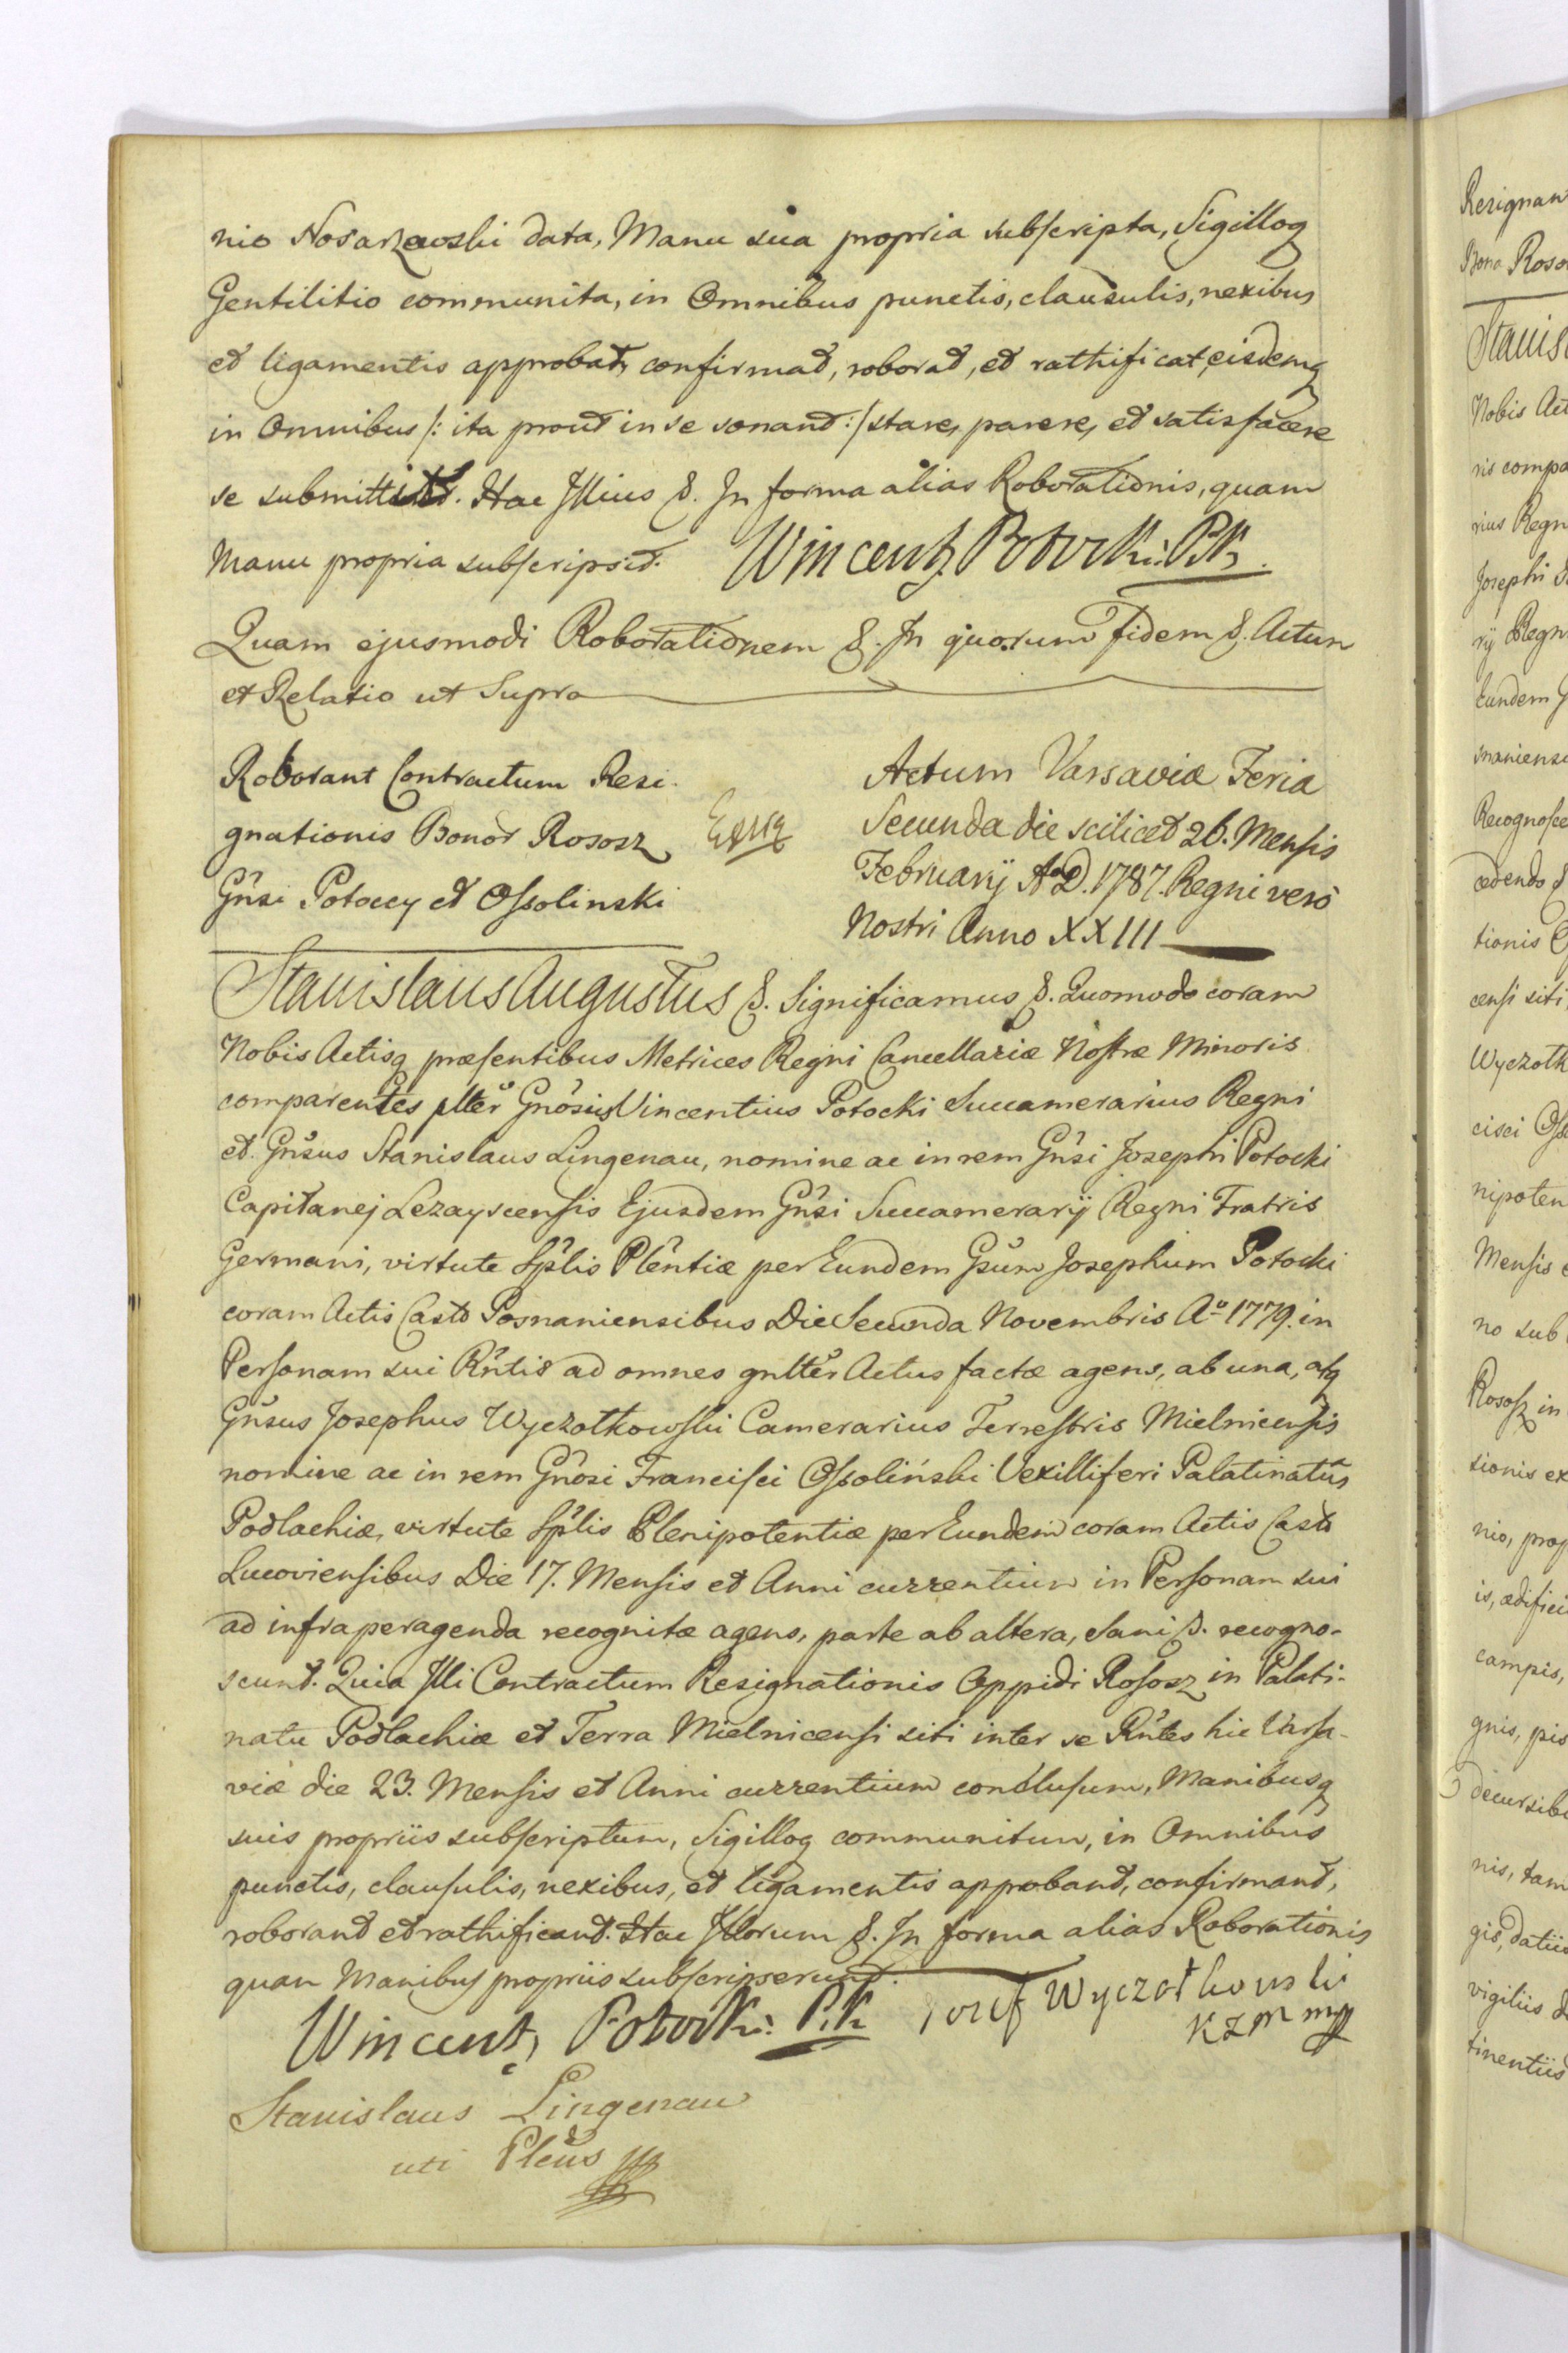 nio Nosarzewski data, Manu sua propria subscripta, Sigilloq
Gentilitio communita, in Omnibus punctis, clausulis, nexibus
et ligamentis approbat, confirmat, roborat, et rathificat, eisdemq
in Omnibus /: ita prout in se sonant :/ stare, parere, et satisfacere
se submittit. Hac Illius &. In forma alias Roborationis, quam
Manu propria subscripsit. Wincenty Potocki: P.K.
Quam ejusmodi Roborationem &. In quorum fidem &. Actum
et Relatio ut Supra
Roborant Contractum Resi-
gnationis Bonor Rososz
Gnsi Potoccy et Ossolinski
Actum Varsaviæ Feria
Secunda die scilicet 26. Mensis
Februarij Ao D. 1787. Regni verò
Nostri Anno XXIII
Stanislaus Augustus &. Significamus &. Quomodo coram
Nobis Actisq præsentibus Metrices Regni Cancellariæ Nostræ Minoris
comparentes pltèr Gnosus Vincentius Potocki Succamerarius Regni
et Gnsus Stanislaus Lingenau, nomine ac in rem Gnsi Josephi Potocki
Capitanej Lezayscensis Ejusdem Gnsi Succamerarij Regni Fratris
Germani, virtute Splis Plentiæ per Eundem Gsum Josephum Potocki
coram Actis Castr Posnaniensibus Die Secunda Novembris Ao 1779. in
Personam sui Rntis ad omnes gnltèr Actus factæ agens, ab una, atq
Gnsus Josephus Wyczołkowski Camerarius Terrestris Mielnicensis
nomine ac in rem Gnosi Francisci Ossoliński Vexilliferi Palatinatûs
Podlachiæ, virtute Splis Plenipotentiæ per Eundem coram Actis Castr
Lucoviensibus Die 17. Mensis et Anni currentium in Personam sui
ad infra peragenda recognitæ agens, parte ab altera, Sani &. recogno-
scunt. Quia Illi Contractum Resignationis Oppidi Rososz in Palati-
natu Podlachiæ et Terra Mielnicensi siti inter se Rntes hic Varsa-
viæ die 23. Mensis et Anni currentium conclusum, Manibusq
suis propriis subscriptum, Sigilloq communitum, in Omnibus
punctis, clausulis, nexibus, et ligamentis approbant, confirmant,
roborant et rathificant. Hac Illorum &. In forma alias Roborationis
quam Manibus propriis subscripserunt.
Wincenty Potocki: P.K. Jozef Wyczołkowski
KZM mp
Stanislaus Lingenau
uti Plenus
Resignan
Bona Roso
Stanis
Nobis Act
ris compa
rius Regn
Josephi
rij Regn
Eundem G
snaniens
Recognosce
cedendo &
tionis
censi siti
Wyczołk
cisci Oss
nipoten
Mensis
no sub
Rososz in
sionis ex
nio, prop
is, ædifici
campis,
gnis, pis
decursib
nis, tam
gis, datiis
vigiliis &
tinentiis